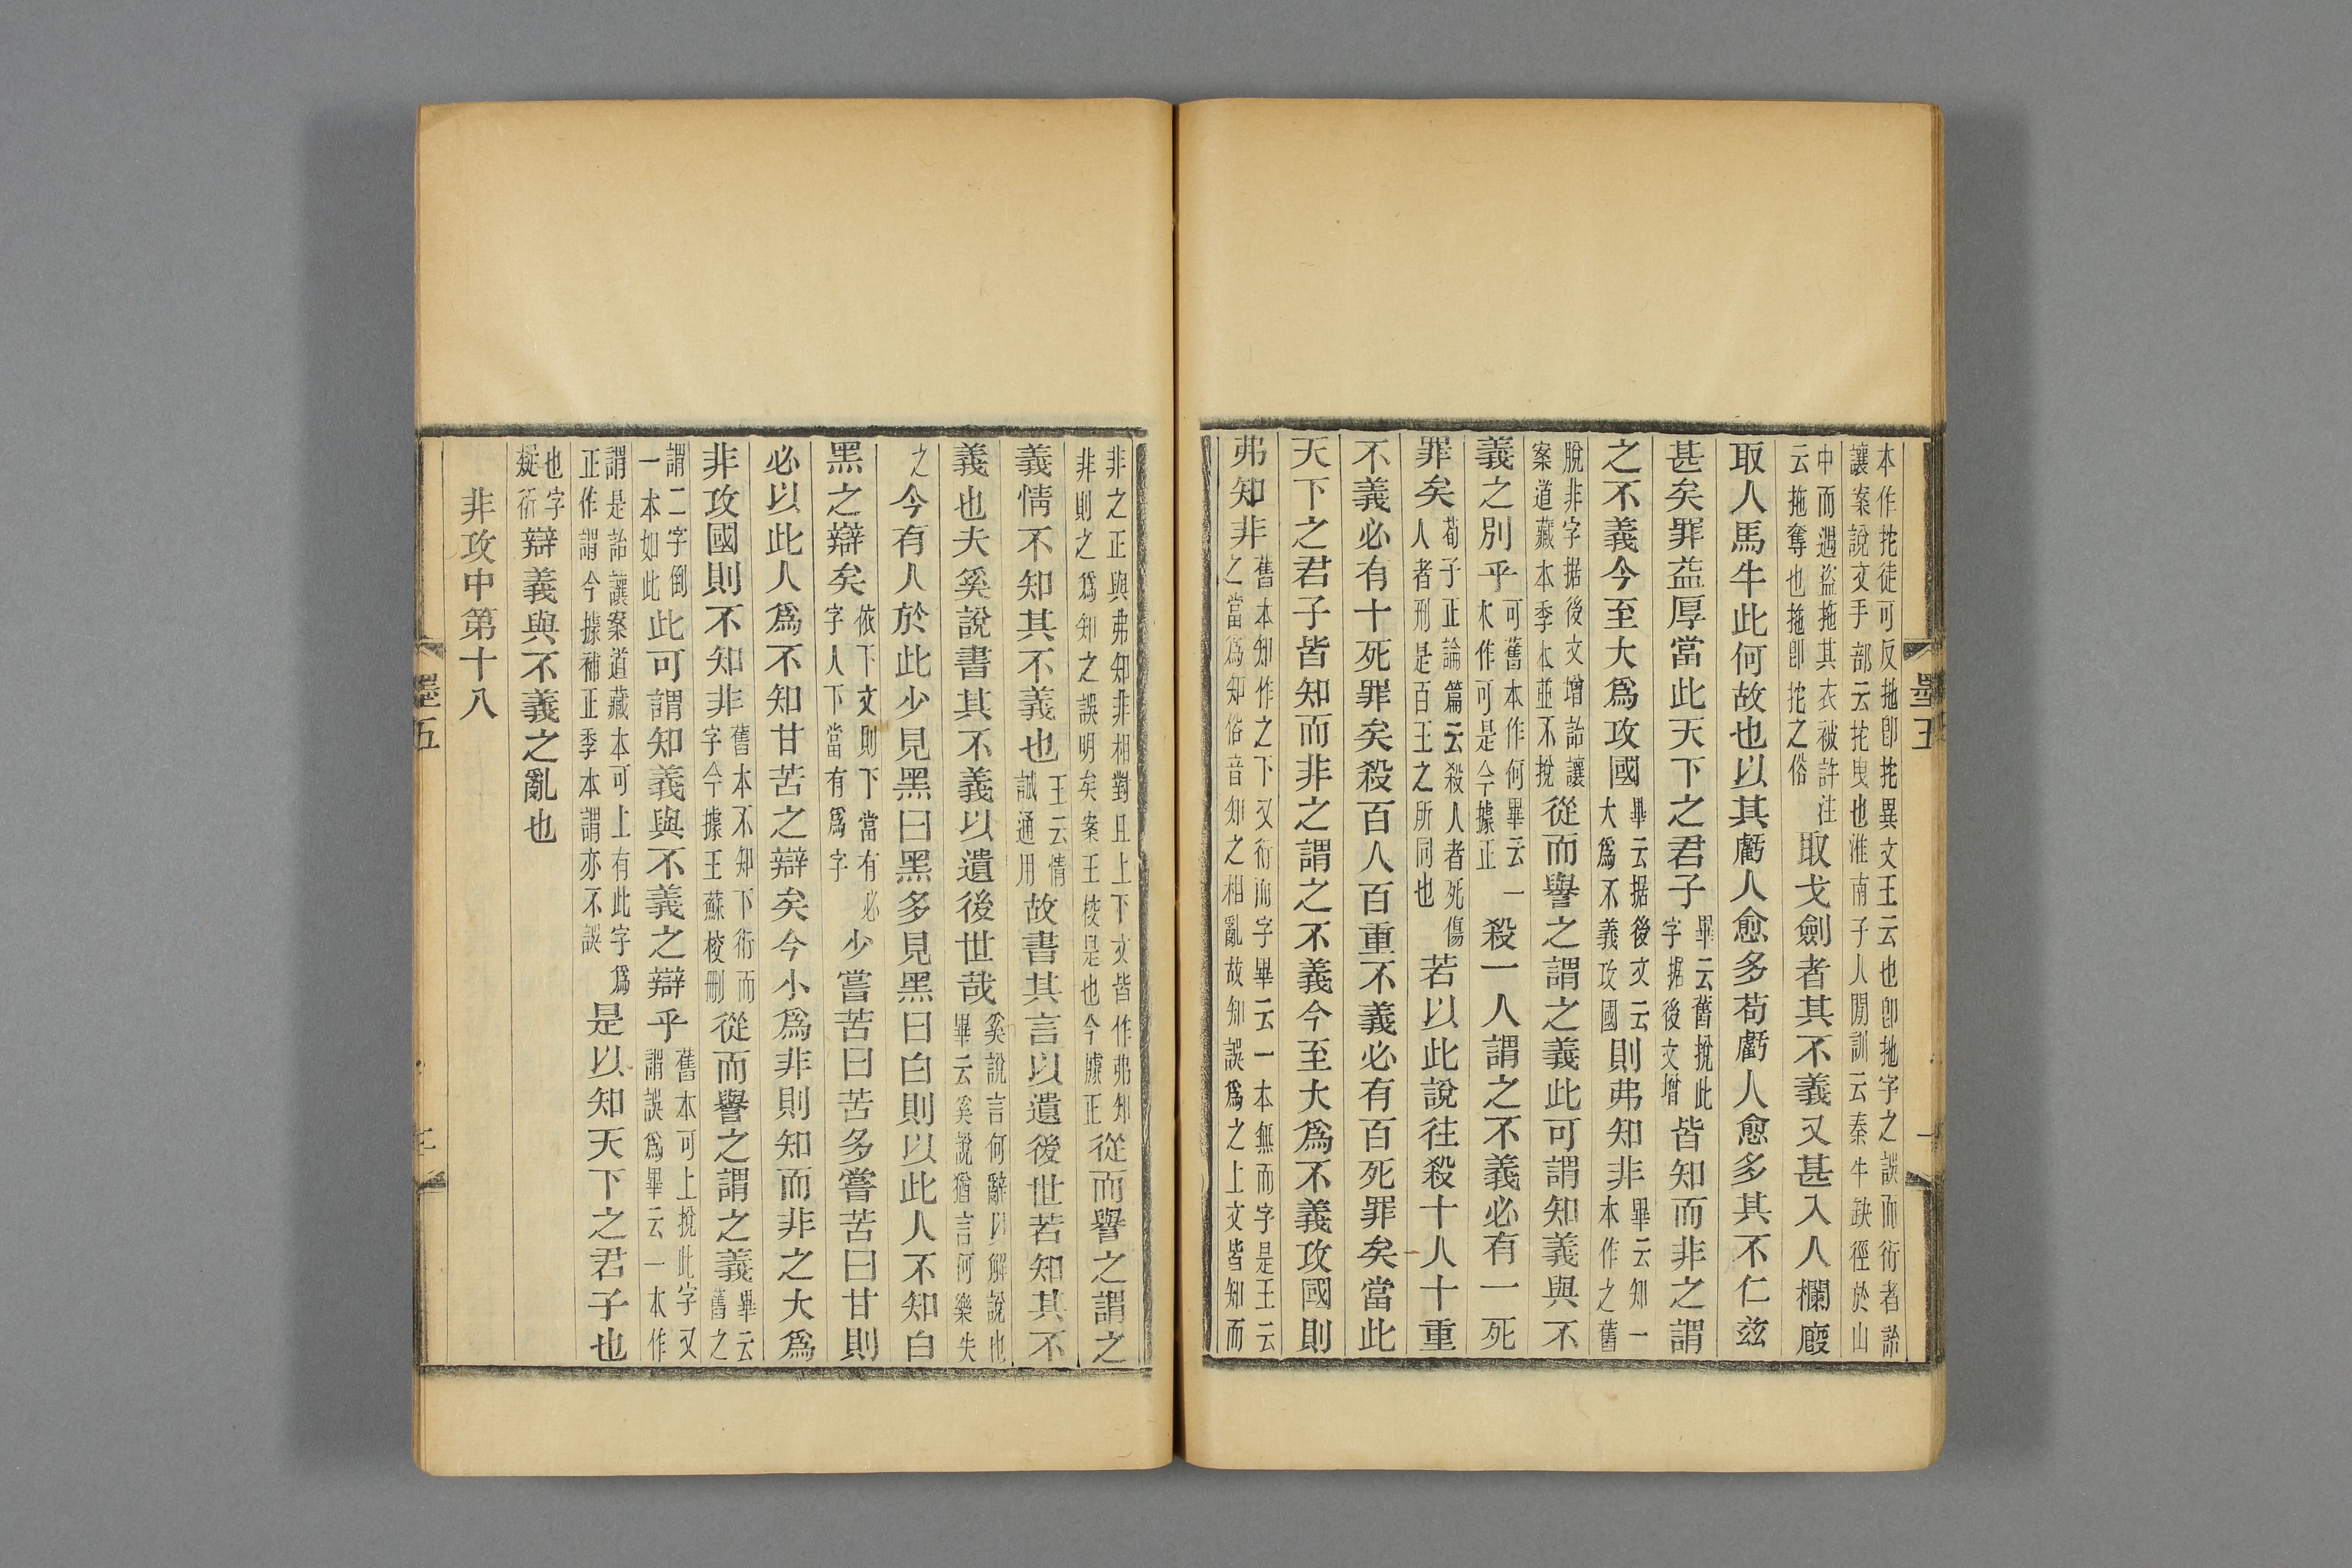 墨五
本作拕徒可反扡卽拕異文王云也卽扡字之誤而衍者詒讓案說文手部云拕曳也淮南子人閒訓云秦牛缺徑於山
中而遇盜拖其衣被許注云拖奪也拖卽拕之俗取戈劍者其不義又甚入人欄廄
取人馬牛此何故也以其虧人愈多苟虧人愈多其不仁茲
甚矣罪益厚當此天下之君子畢云舊挩此字据後文增皆知而非之謂
之不義今至大爲攻國畢云据後文云大爲不義攻國則弗知非畢云知一本作之舊
脫非字据後文增詒讓案道藏本季本並不挩從而譽之謂之義此可謂知義與不
義之別乎可舊本作何畢云一本作可是今據正殺一人謂之不義必有一死
罪矣荀子正論篇云殺人者死傷人者刑是百王之所同也若以此說往殺十人十重
不義必有十死罪矣殺百人百重不義必有百死罪矣當此
天下之君子皆知而非之謂之不義今至大爲不義攻國則
弗知非舊本知作之下又衍而字畢云一本無而字是王云之當爲知俗音知之相亂故知誤爲之上文皆知而
非之正與弗知非相對且上下文皆作弗知非則之爲知之誤明矣案王校是也今據正從而譽之謂之
義情不知其不義也王云情誠通用故書其言以遺後世若知其不
義也夫奚說書其不義以遺後世哉奚說言何辭以解說也畢云奚說猶言何樂失
之今有人於此少見黑曰黑多見黑曰白則以此人不知白
黑之辯矣依下文則下當有必字人下當有爲字少嘗苦曰苦多嘗苦曰甘則
必以此人爲不知甘苦之辯矣今小爲非則知而非之大爲
非攻國則不知非舊本不知下衍而字今據王蘇校刪從而譽之謂之義畢云舊之
謂二字倒一本如此此可謂知義與不義之辯乎舊本可上挩此字又謂誤爲畢云一本作
謂是詒讓案道藏本可上有此字爲正作謂今據補正季本謂亦不誤是以知天下之君子也
也字疑衍辯義與不義之亂也
非攻中第十八
墨五
三